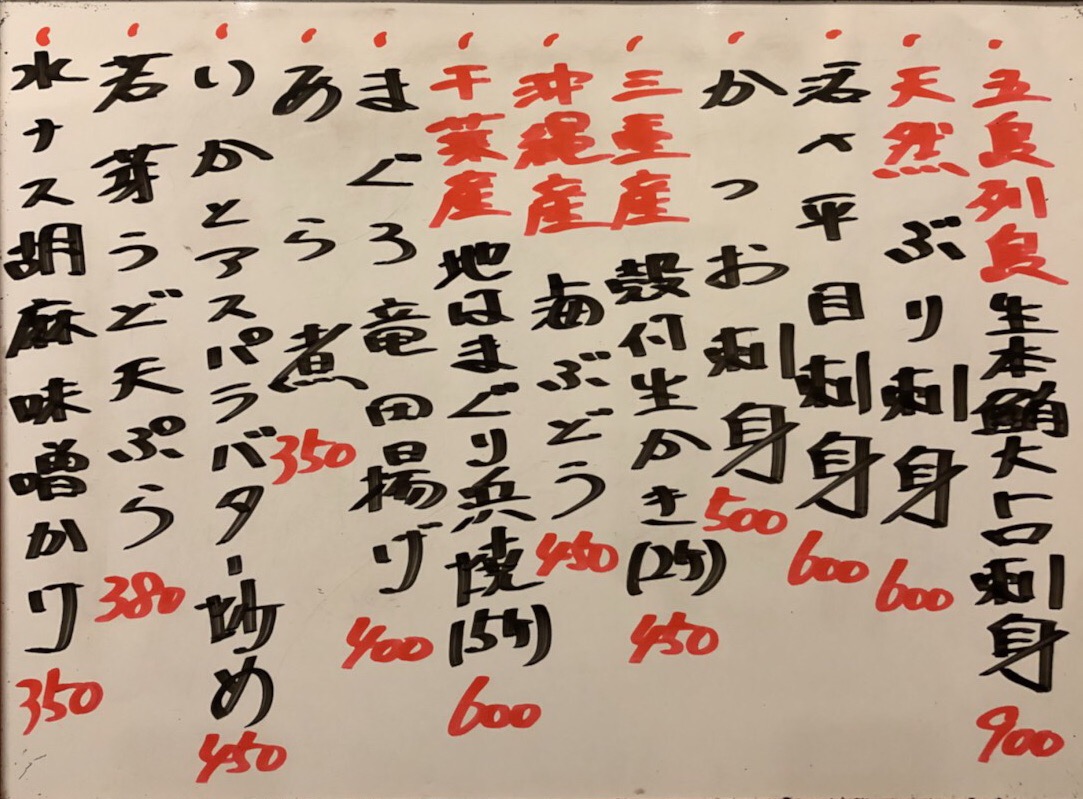 五島列島生本鮪大トロ刺身 900
天然ぶり刺身 600
活〆平目刺身 600
かつお刺身 500
三重産殻付生かき(2ケ) 450
沖縄産海ぶどう 450
千葉産地はまぐり浜焼(5ケ) 600
まぐろ竜田揚げ 400
あら煮 350
いかとアスパラバター炒め 450
若芽うど天ぷら 380
水ナス胡麻味噌かけ 350